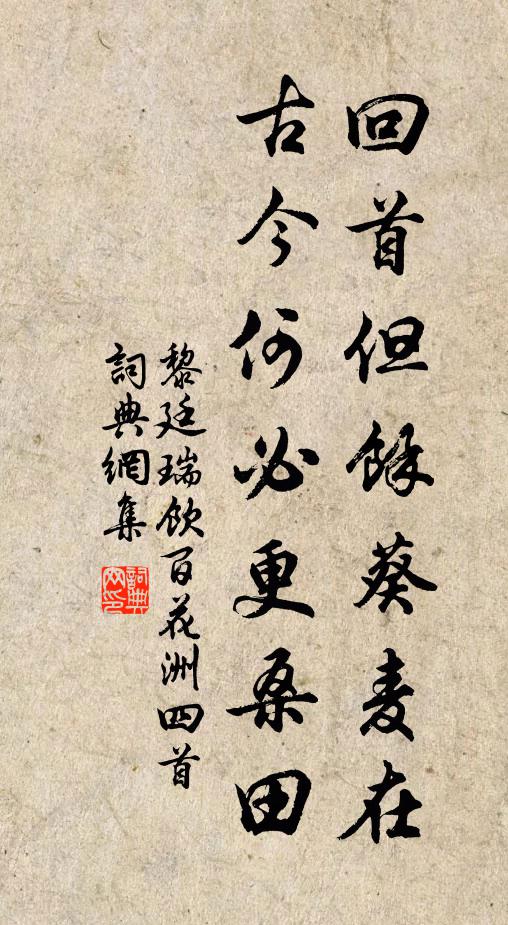 回首但餘葵麦在
古今何必更桑田
黎廷瑞飲百花洲四首
詞典網集
詞典網印